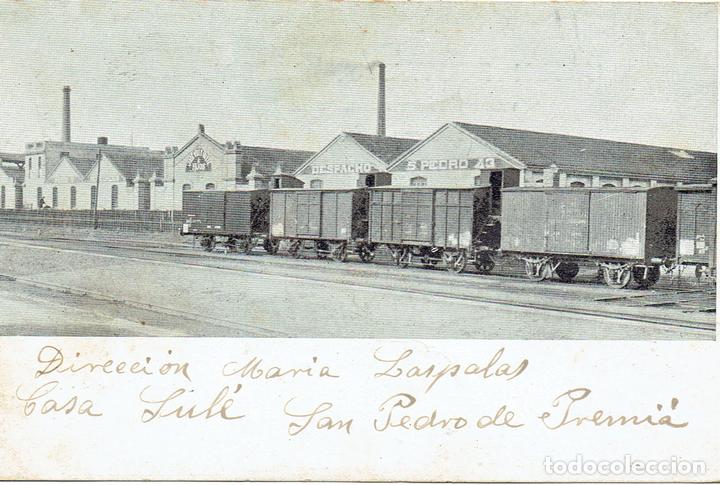 DESPACHO S. PEDRO 43
Dirección Maria Laspalas
Casa Sulé San Pedro de Premiá
todocoleccion